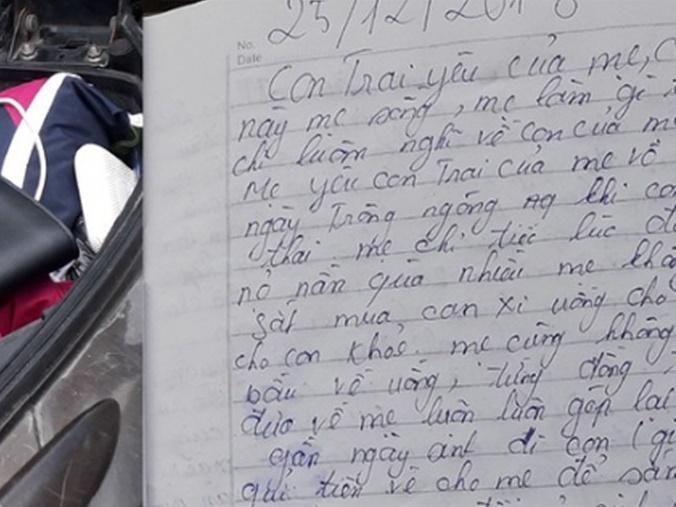 No.
Date
25/12/201 8
Con Trai yêu của mẹ, C
này mẹ sống, mẹ làm gì
chỉ luôn nghĩ về con của m
Mẹ yêu con Trai của mẹ vô
ngày Trông ngóng khi con
thai mẹ chỉ tiếc lúc đ
nỏ nần quá nhiều mẹ khô
sắt mua, can xi uống cho
cho con khoẻ. mẹ cũng không
bầu về uống, từng đồng
đưa về mẹ luôn luôn góp lại
gần ngày sinh con (gi
gửi tiền về cho mẹ để